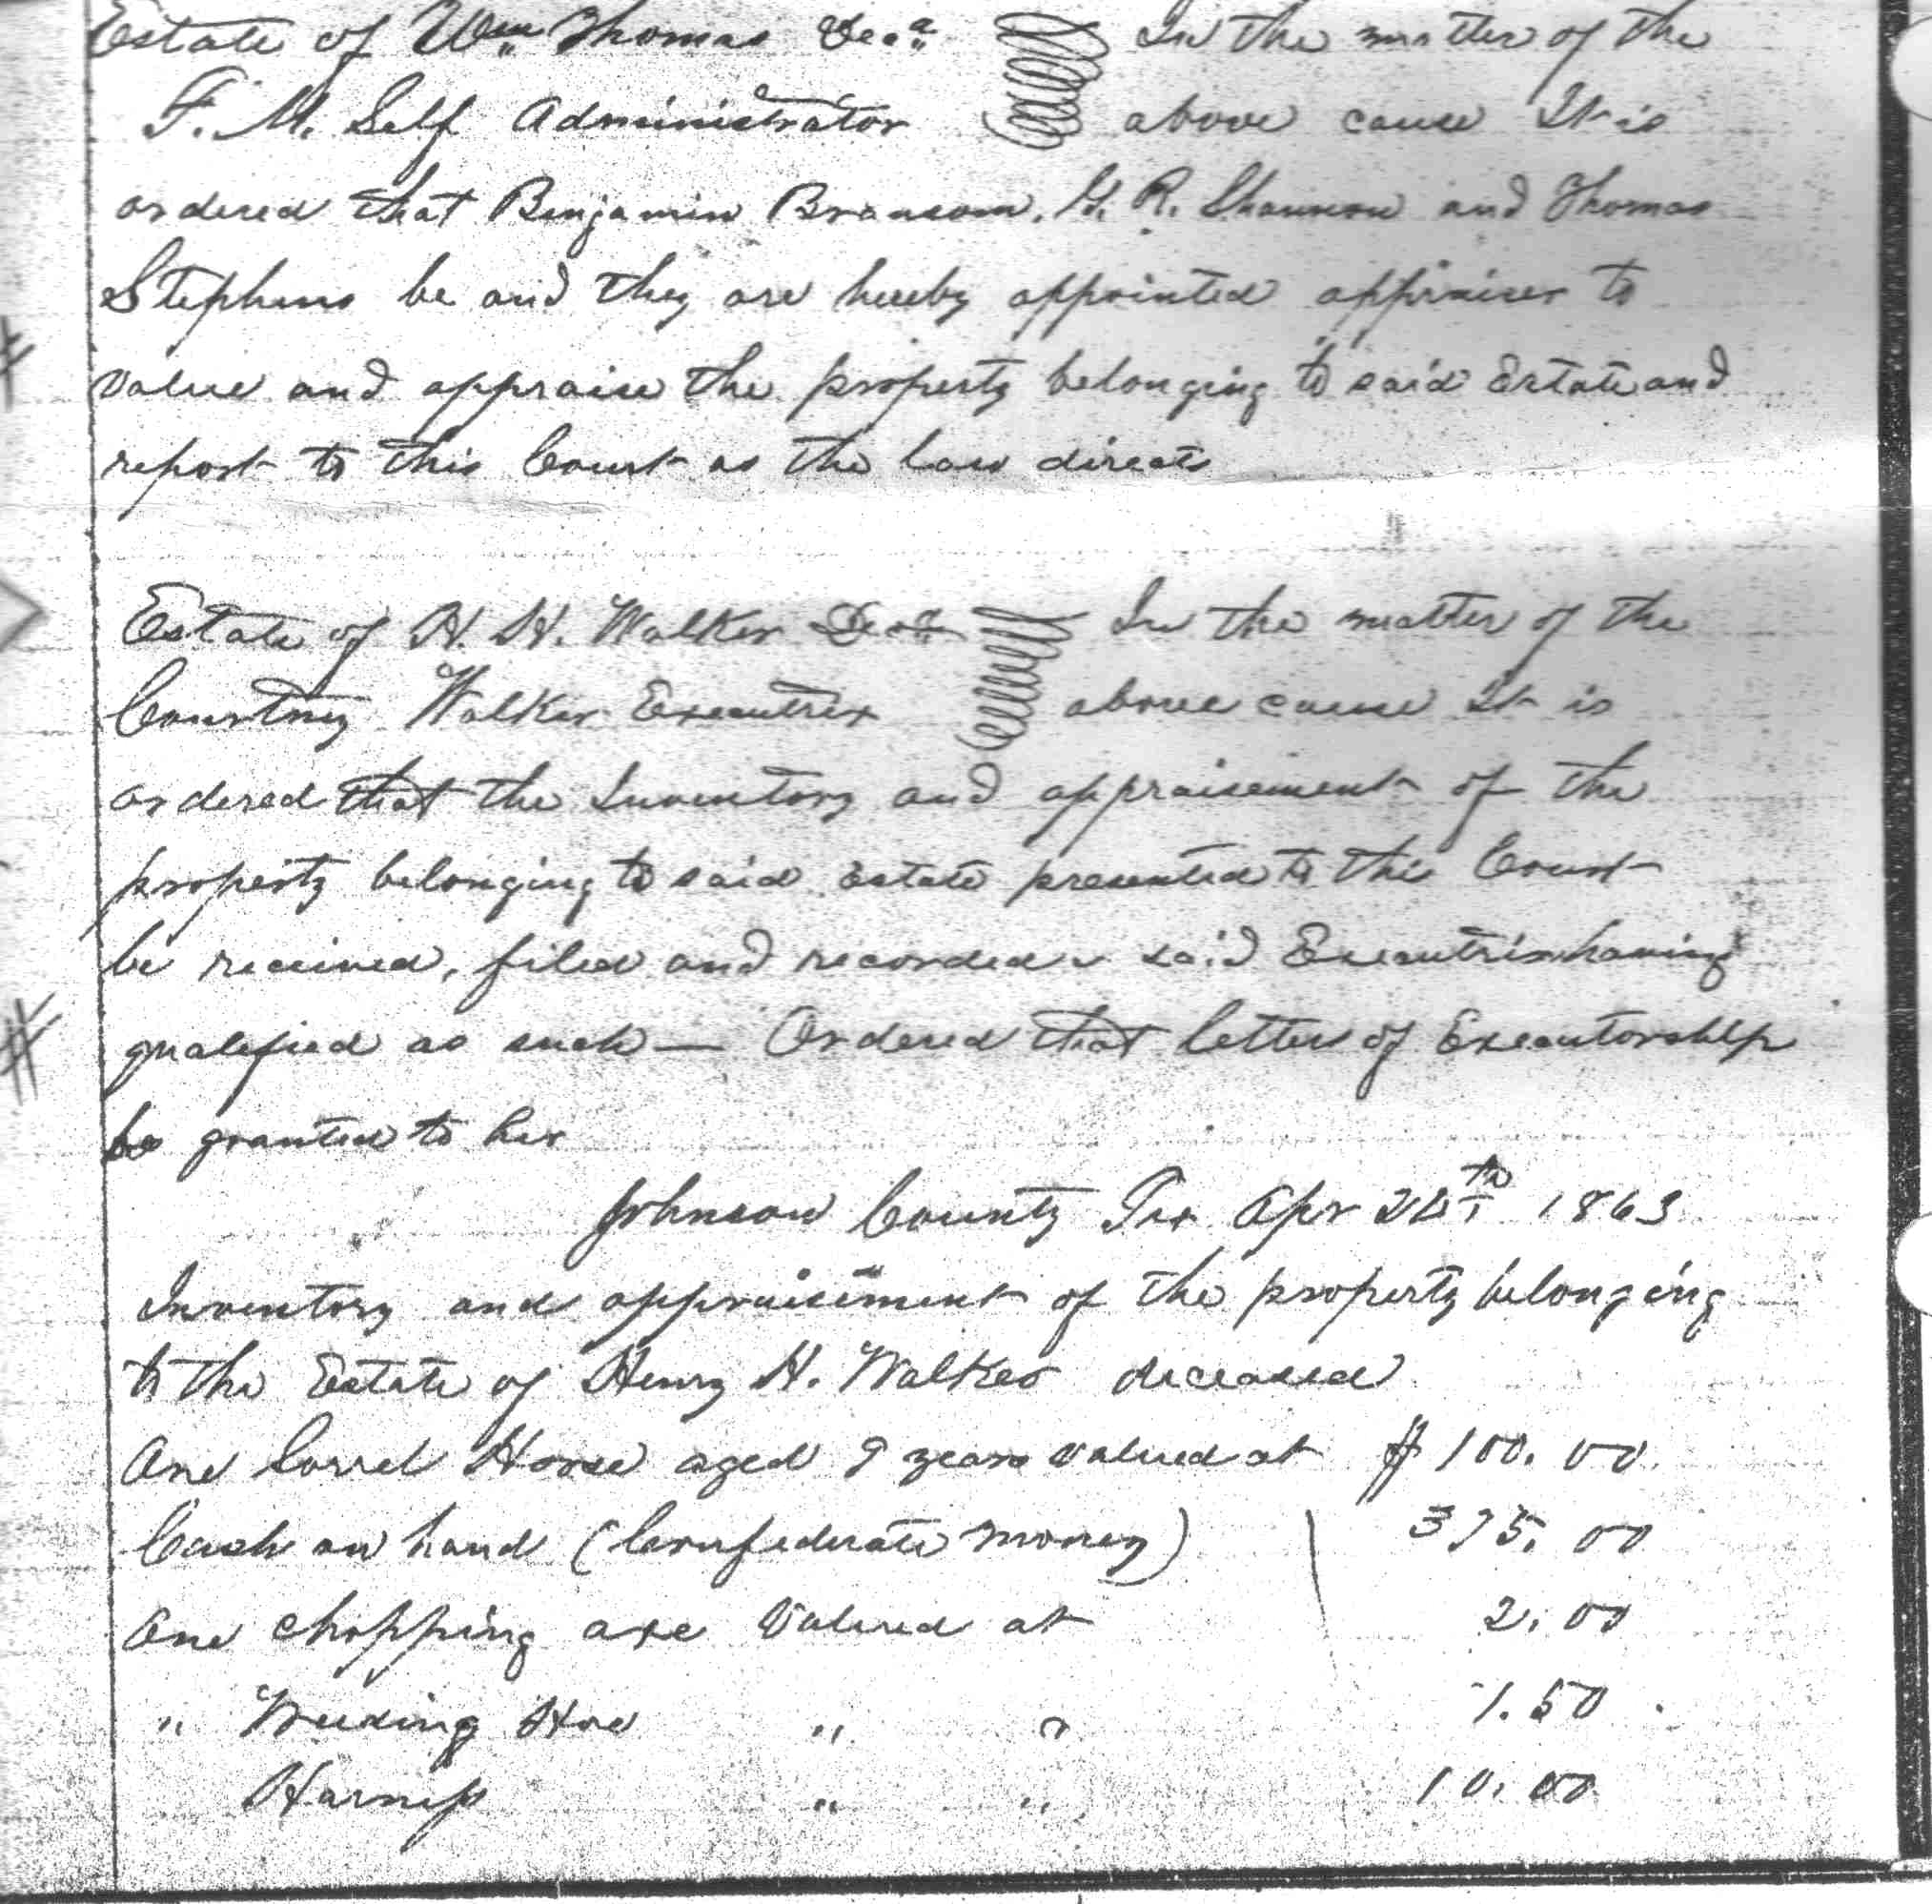 Estate of Wm Thomas Decd In the matter of the
F. M. Self Administrator above cause It is
ordered that Benjamin Bransom, G. R. Shannon and Thomas
Stephens be and they are hereby appointed appraiser to
value and appraise the property belonging to said Estate and
report to this Court as the law directs
Estate of H. H. Walker Decd In the matter of the
Courtney Walker Executrix above cause It is
ordered that the Inventory and appraisement of the
property belonging to said Estate presented to this Court
be received, filed and recorded said Executrix having
qualified as such — Ordered that letters of Executorship
be granted to her
Johnson County Tex Apr 24th 1863
Inventory and appraisement of the property belonging
to the Estate of Henry H. Walker deceased
One Sorrel Horse aged 9 years valued at $ 100.00
Cash on hand (Confederate money) 375.00
One chopping axe valued at 2.00
" Weeding Hoe " " 1.50
Harness " " 10.00